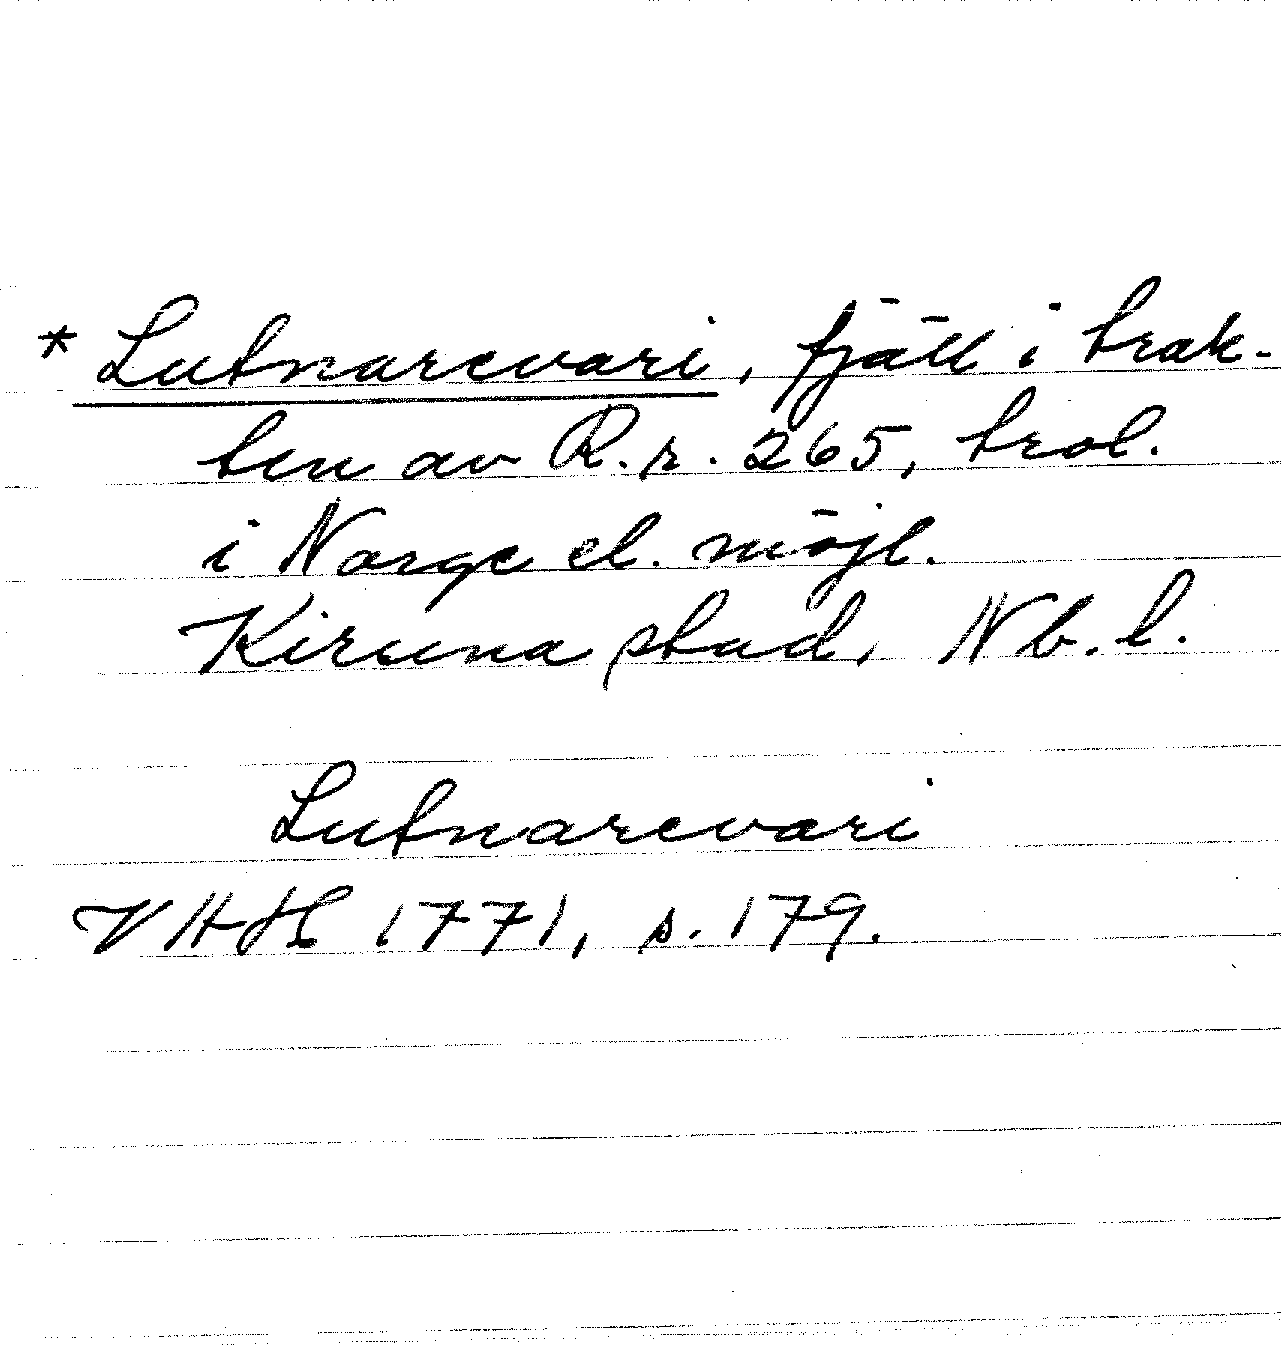 * Lutnarevari, fjäll i trak-
ten av R.r. 265, trol.
i Norge el. möjl.
Kiruna stad, Nb. l.
Lutnarevari
VHAH 1771, s. 179.